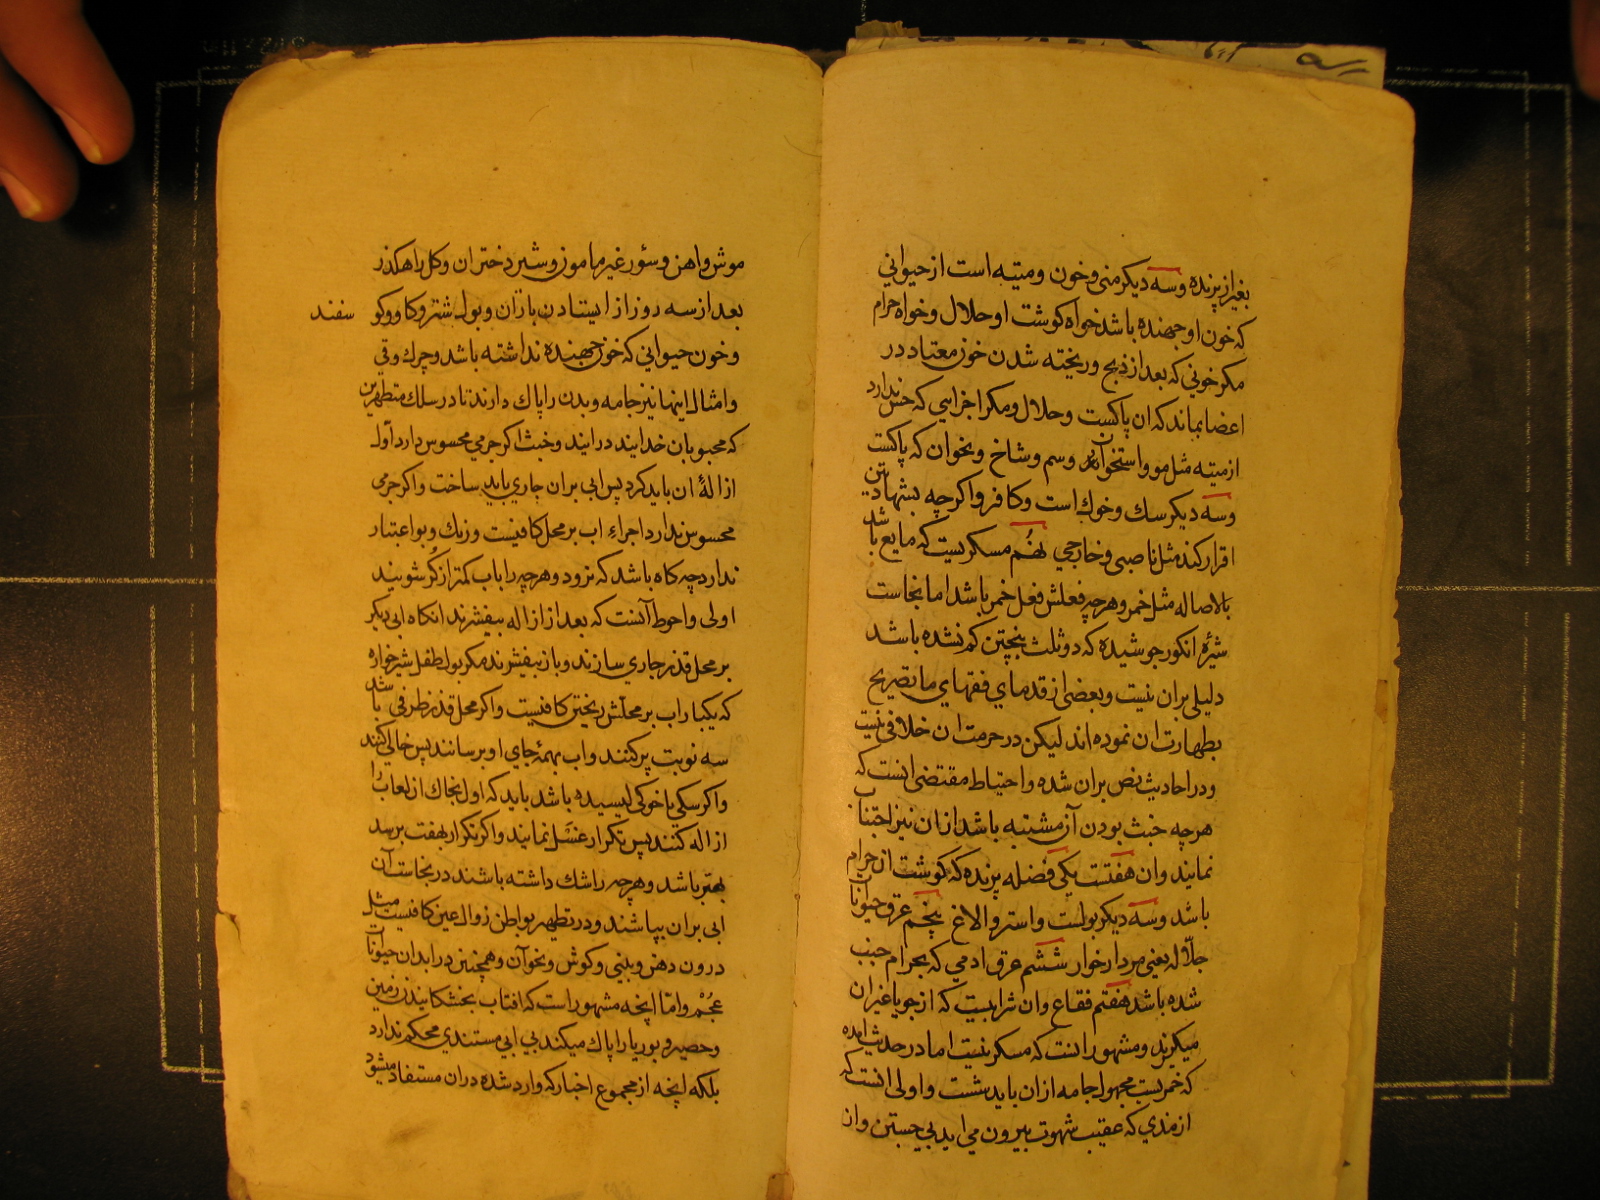 بغیر از پرنده وسه دیکر منی وخون ومیته است از حیوانی
که خون او جهنده باشد خواه کوشت او حلال وخواه حرام
مکر خونی که بعد از ذبح وریخته شدن خون معتاد در
اعضا بماند که ان پاکست وحلال ومکر اجزایی که حس ندارد
از میته مثل مو واستخوان وسم وشاخ ونخوان که پاکست
وسه دیکر سك وخوك است وکافر واکرچه بشهادتین
اقرار کند مثل ناصبی وخارجی نهم مسکریست که مایع باشد
بالاصاله مثل خمر وهرچه فعلش فعل خمر باشد اما نجاست
شیرهٔ انکور جوشیده که دو ثلث بپختن کم نشده باشد
دلیلی بران نیست وبعضی از قدمای فقهای ما تصریح
بطهارت ان نموده اند لیکن در حرمت ان خلافی نیست
ودر احادیث نص بران شده واحتیاط مقتضی انست که
هرچه خبث بودن آن مشتبه باشد از ان نیز اجتناب
نمایند وان هفتست یکی فضله پرنده که کوشت ان حرام
باشد وسه دیکر بول است واستر والاغ پنجم عرق حیوانات
جلّاله یعنی مردار خوار ششم عرق ادمی که بحرام جنب
شده باشد هفتم فقاع وان شرابیست که از جو یا غیر ان
میکیرند ومشهور انست که مسکر نیست اما در حدیث امده
که خمریست مجهول جامه از ان باید شست واولی انست که
از مذی که عقیب شهوت بیرون می اید بی جستن وان
موش واهن وسؤر غیر مامون وشیر دختران وکل راهکذر
بعد از سه روز از ایستادن باران وبول شتر وکاو وکو سفند
وخون حیوانی که خون جهنده نداشته باشد وچرك وقی
وامثال اینها نیز جامه وبدن را پاك دارند تا در سلك متطهرین
که محبوبان خدایند درایند وخبث اکر جرمی محسوس دارد اول
ازالهٔ ان باید کرد پس ابی بران جاری باید ساخت واکر جرمی
محسوس ندارد اجراء اب بر محل کافیست ورنك وبو اعتبار
ندارد چه کاه باشد که نرود وهرچه را باب کمتر از کُر شویند
اولی واحوط آنست که بعد از ازاله بیفشرند انکاه ابی دیکر
بر محل قذر جاری سازند وباز بیفشرند مکر بول طفل شیرخواره
که یکبار اب بر محلش ریختن کافیست واکر محل قذر ظرفی باشد
سه نوبت پر کنند واب بهمهٔ جای او برسانند پس خالی کنند
واکر سکی یا خوکی لیسیده باشد باید که اول بخاك از لعاب را
ازاله کنند پس تکرار غسل نمایند واکر تکرار بهفت برسد
بهتر باشد وهرچه را شك داشته باشند در نجاست آن
ابی بران بپاشند ودر تطهیر بواطن زوال عین کافیست مثل
درون دهن وبینی وکوش ونحوآن وهمچنین در ابدان حیوانات
عُجم واما اینچه مشهور است که افتاب بخشکانیدن زمین
وحصیر وبوریا را پاك میکند بی ابی مستندی محکم ندارد
بلکه اینچه از مجموع اخبار که وارد شده دران مستفاد میشود